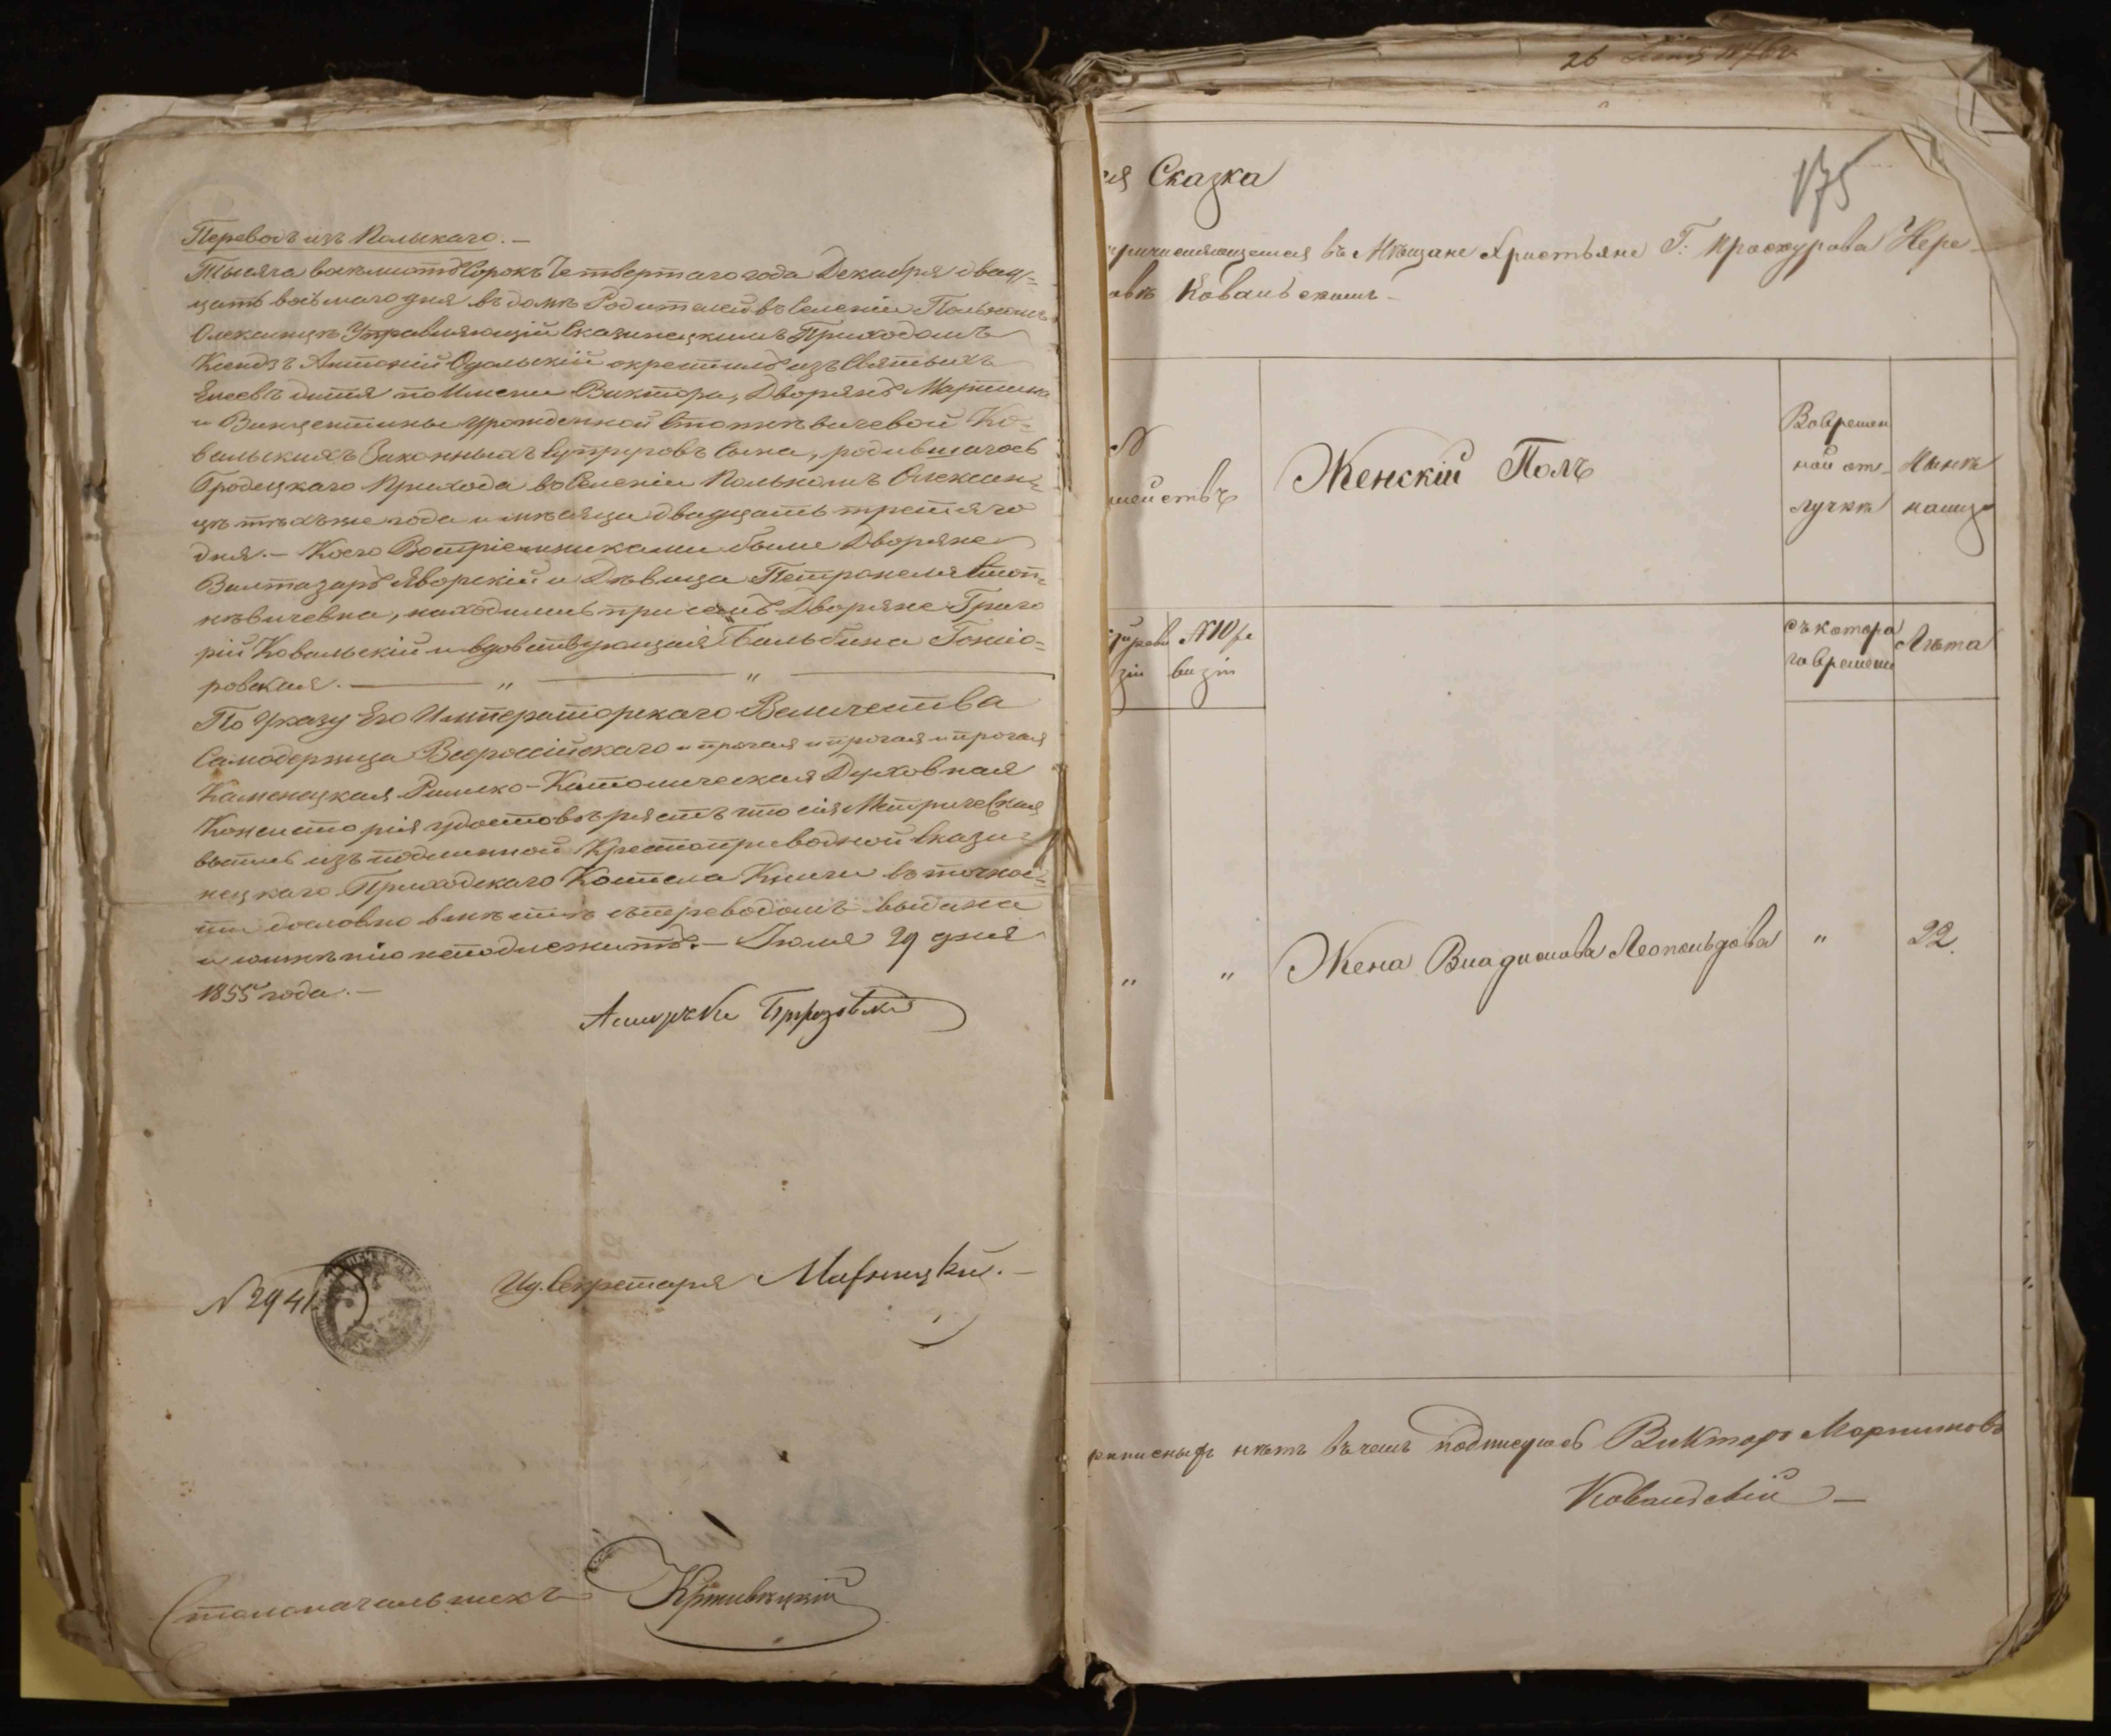 Переводъ изъ Польскаго. —
Тысяча восемьсотъ Сорокъ Четвертаго года Декабря двад=
цать восьмаго дня въ домѣ Родителей въ Селеніи Польномъ
Олексинцѣ Управляющій Сказинецкимъ Приходомъ
Ксендзъ Антоній окрестилъ изъ Святыхъ
Елеевъ дитя по Имени Виктора, Дворянъ Мартина
и Винцентины урожденной Ко=
вальскихъ Законныхъ Супруговъ Сына, родившагось
Гродецкаго Прихода въ Селеніи Польномъ Олексин=
цѣ тѣхъ же года и мѣсяца двадцать третьяго
дня. — Коего Воспріемниками были Дворяне
Валтазаръ Яворскій и Дѣвица Петронеля
находились при семъ Дворяне Григо
рій Ковальскій и вдовствующая Бальбина Гонсіо=
ровская. — " — " —
По Указу Его Императорскаго Величества
Самодержца Всероссійскаго и прочая и прочая и прочая
Каменецкая Римско-Католическая Духовная
Консисторія удостовѣряетъ что сія Метрическая
выпись изъ подлинной Крестоприводной Скази=
нецкаго Приходскаго Костела Книги въ точнос=
ти дословно вмѣстѣ съ переводомъ выдана
и сомнѣнію неподлежитъ. — Іюля 29 дня
1855 года. —
№ 2941
Ид. Секретаря
Столоначальникъ
26
175
ая Сказка
причисляющемся въ Мѣщане Христьяне Г. Проскурова
Ковальскимъ —
№
мействъ
Женскій Полъ
Вовремен
ной от-
лучкѣ
Нынѣ
налицо
№ 10 ре
зіи визіи
съ котора
го времени
Лѣта
" " Жена Владислова Леопольдова " 22.
нѣтъ въ чемъ подписуюсь Викторъ Мартиновъ
Ковальскій —